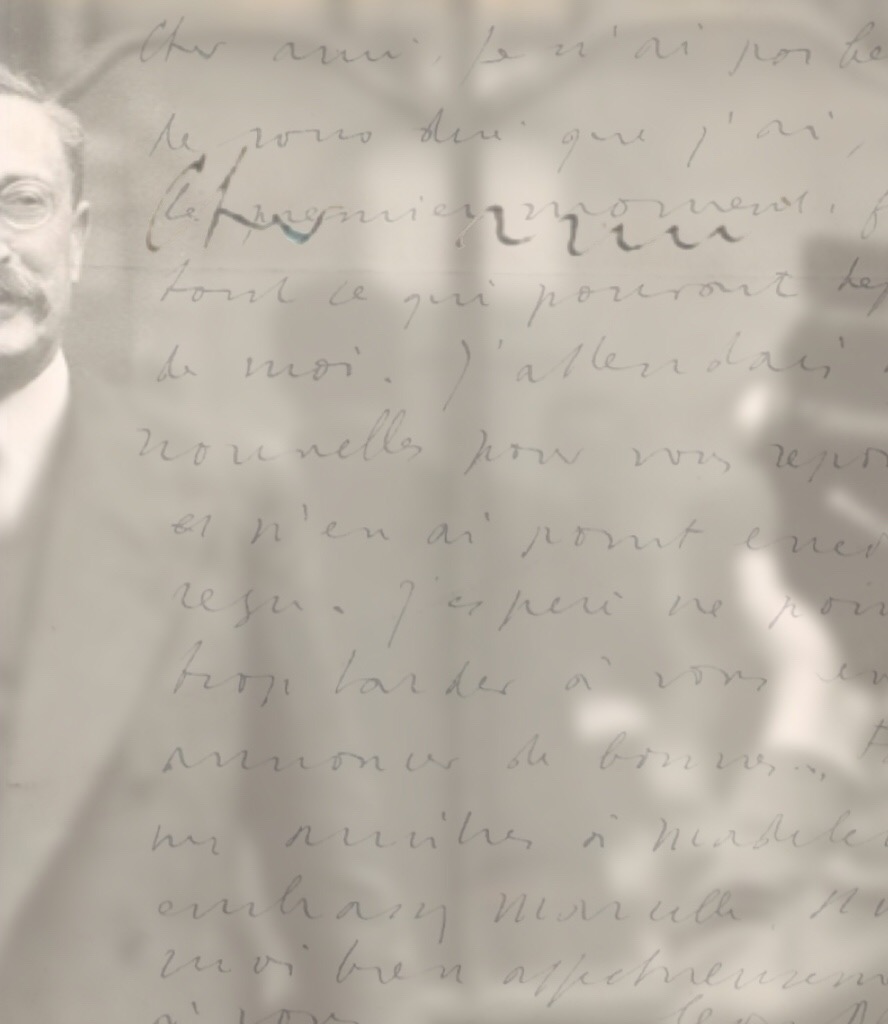 Cher ami, Je n'ai pas be
de vous dire que j'ai,
le premier moment, f
Cher ami
tout ce qui pouvait dep
de moi. J'attendais
nouvelles pour vous repon
et n'en ai point enco
reçu. J'espère ne poin
trop tarder à vous en
annoncer de bonnes...
mes amitiés à Madele
embrassez Marcelle.
moi bien affectueusem
à vous